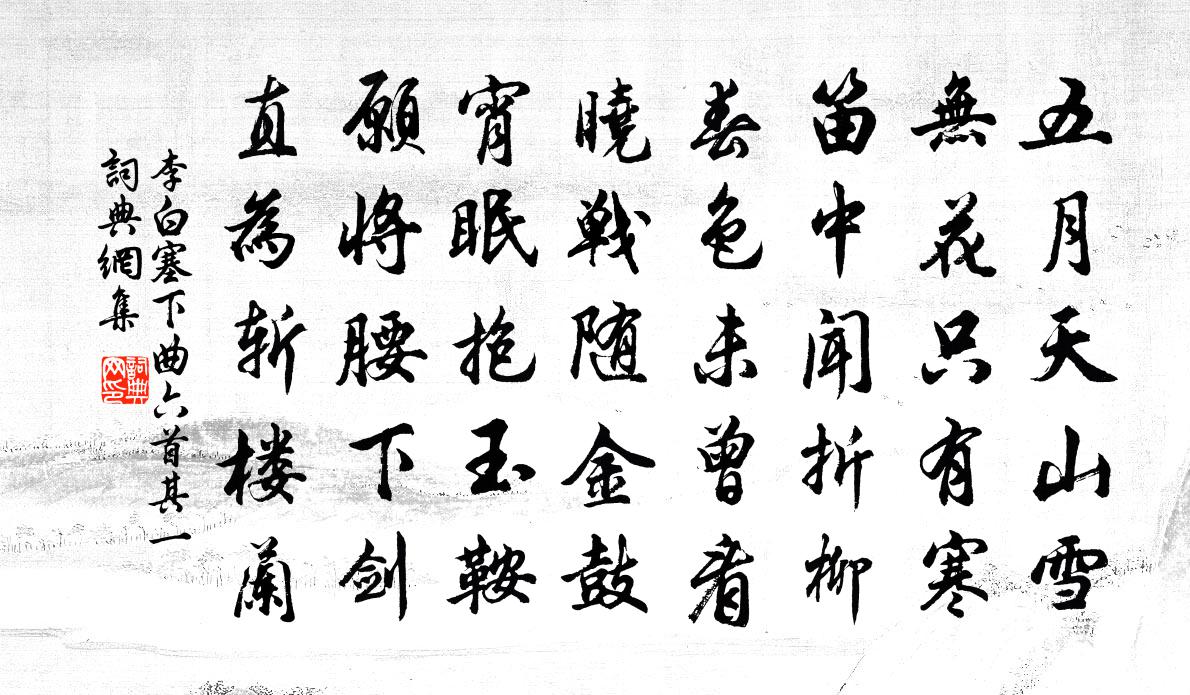 五月天山雪
無花只有寒
笛中聞折柳
春色未曾看
曉戦随金鼓
宵眠抱玉鞍
願將腰下剑
直為斩楼蘭
李白塞下曲六首其一
詞典網集
詞典
网印